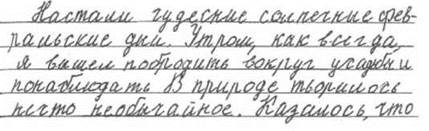 Настали чудесные солнечные фев-
ральские дни. Утром, как всегда,
я вышел побродить вокруг усадьбы и
понаблюдать. В природе творилось
нечто необычайное. Казалось, что